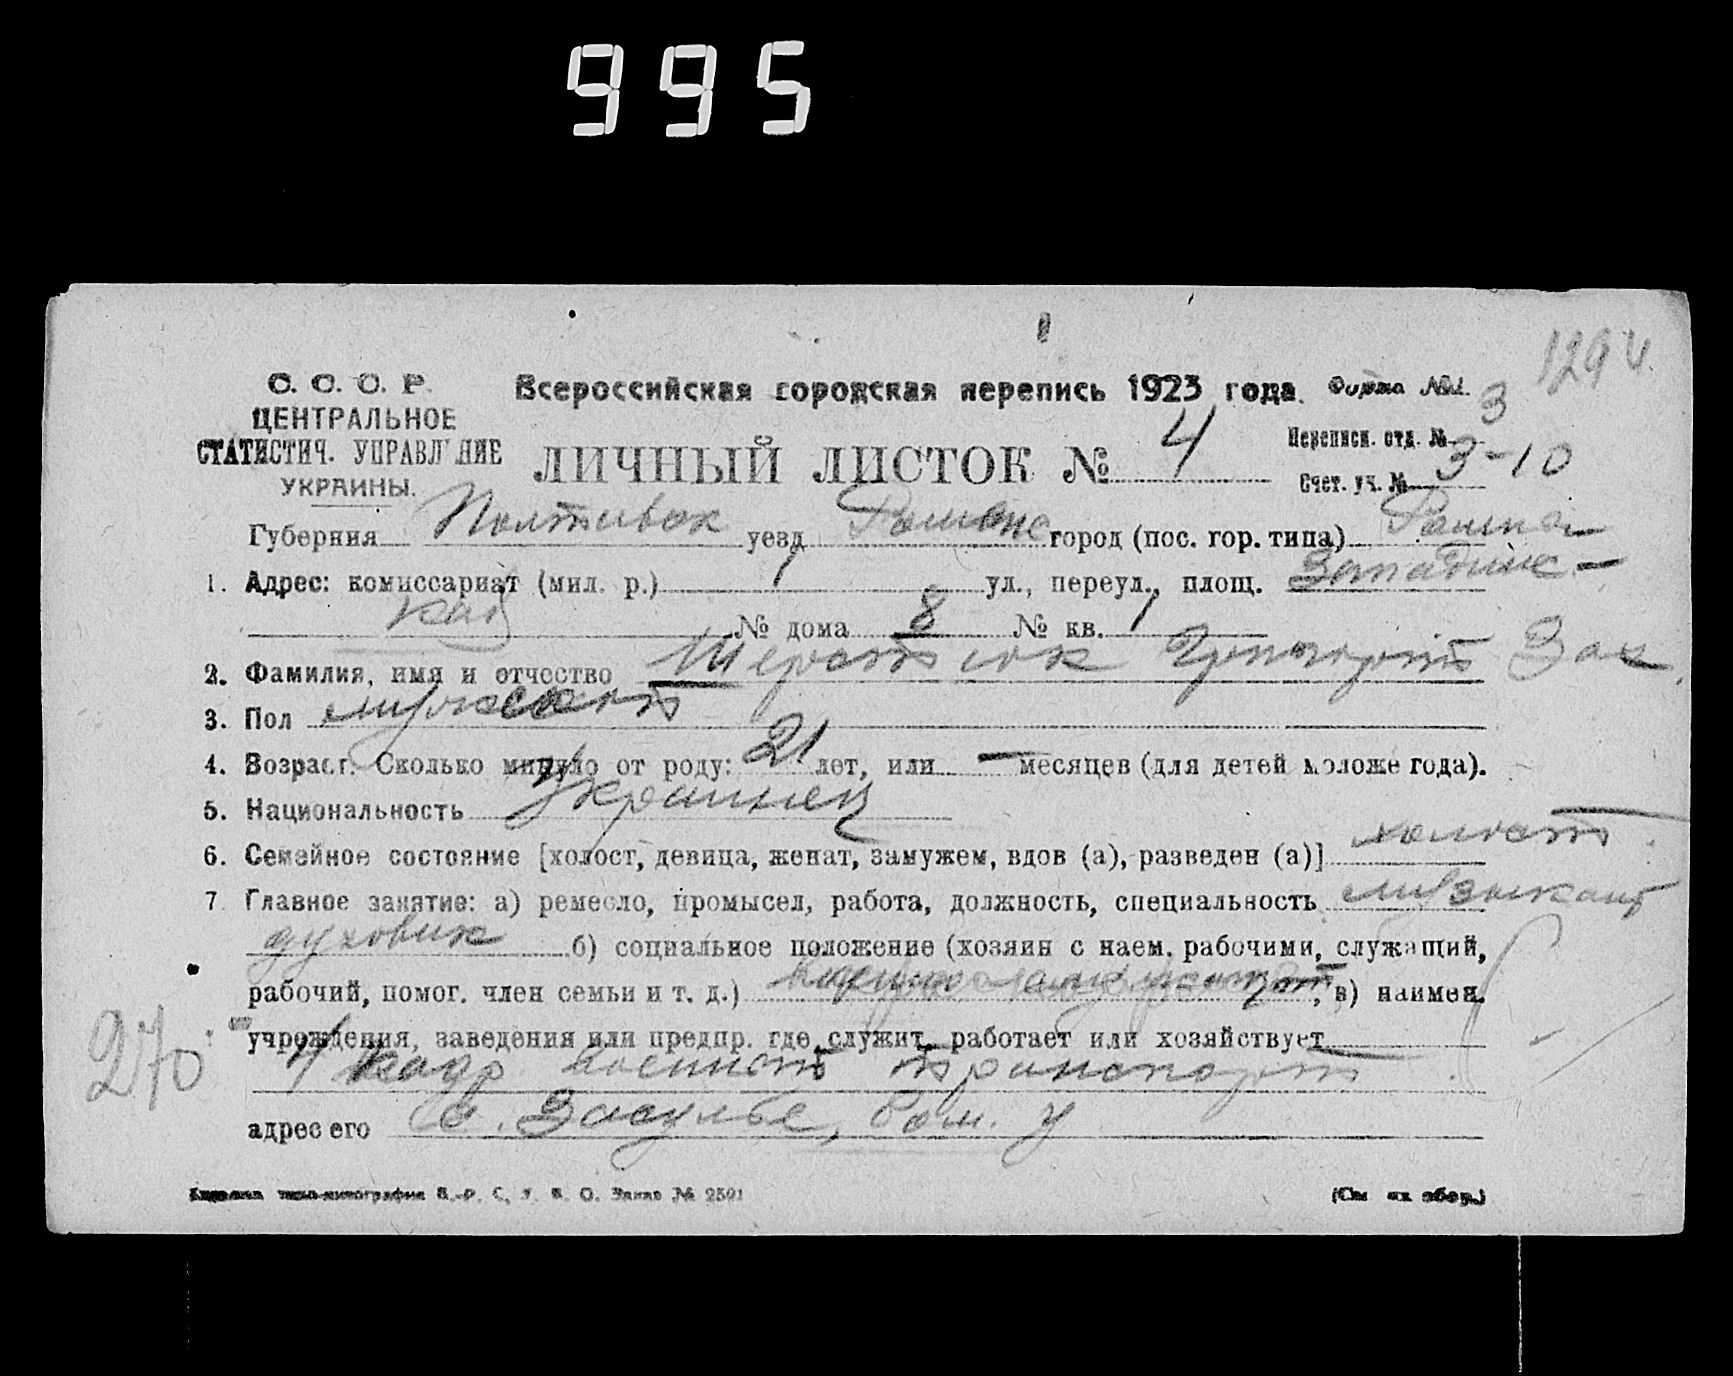 995
1294
С. С. С. Р.
ЦЕНТРАЛЬНОЕ
СТАТИСТИЧ. УПРАВЛЕНИЕ
УКРАИНЫ.
Всероссийская городская перепись 1923 года. Форма №
ЛИЧНЫЙ ЛИСТОК № 4
Переписн. отд. № 3
Счет. уч. № 3-10
Губерния Полтавск уезд город (пос. гор. типа)
1. Адрес: комиссариат (мил. р.) 1 ул., переул., площ. Западинс-
кая № дома 8 № кв. 1
2. Фамилия, имя и отчество Григорий Зах
3. Пол мужской
4. Возраст. Сколько минуло от роду: 21 лет, или — месяцев (для детей моложе года).
5. Национальность Украинец
6. Семейное состояние [холост, девица, женат, замужем, вдов (а), разведен (а)] холост
7 Главное занятие: а) ремесло, промысел, работа, должность, специальность музыкант
духовик б) социальное положение (хозяин с наем. рабочими, служащий,
рабочий, помог. член семьи и т. д.) , в) наимен.
270
учреждения, заведения или предпр. где служит, работает или хозяйствует
4 кадр военной транспорт
адрес его с. Засулье, Ром. у
С. У. В. О. Заказ № 2591
(См на обор.)